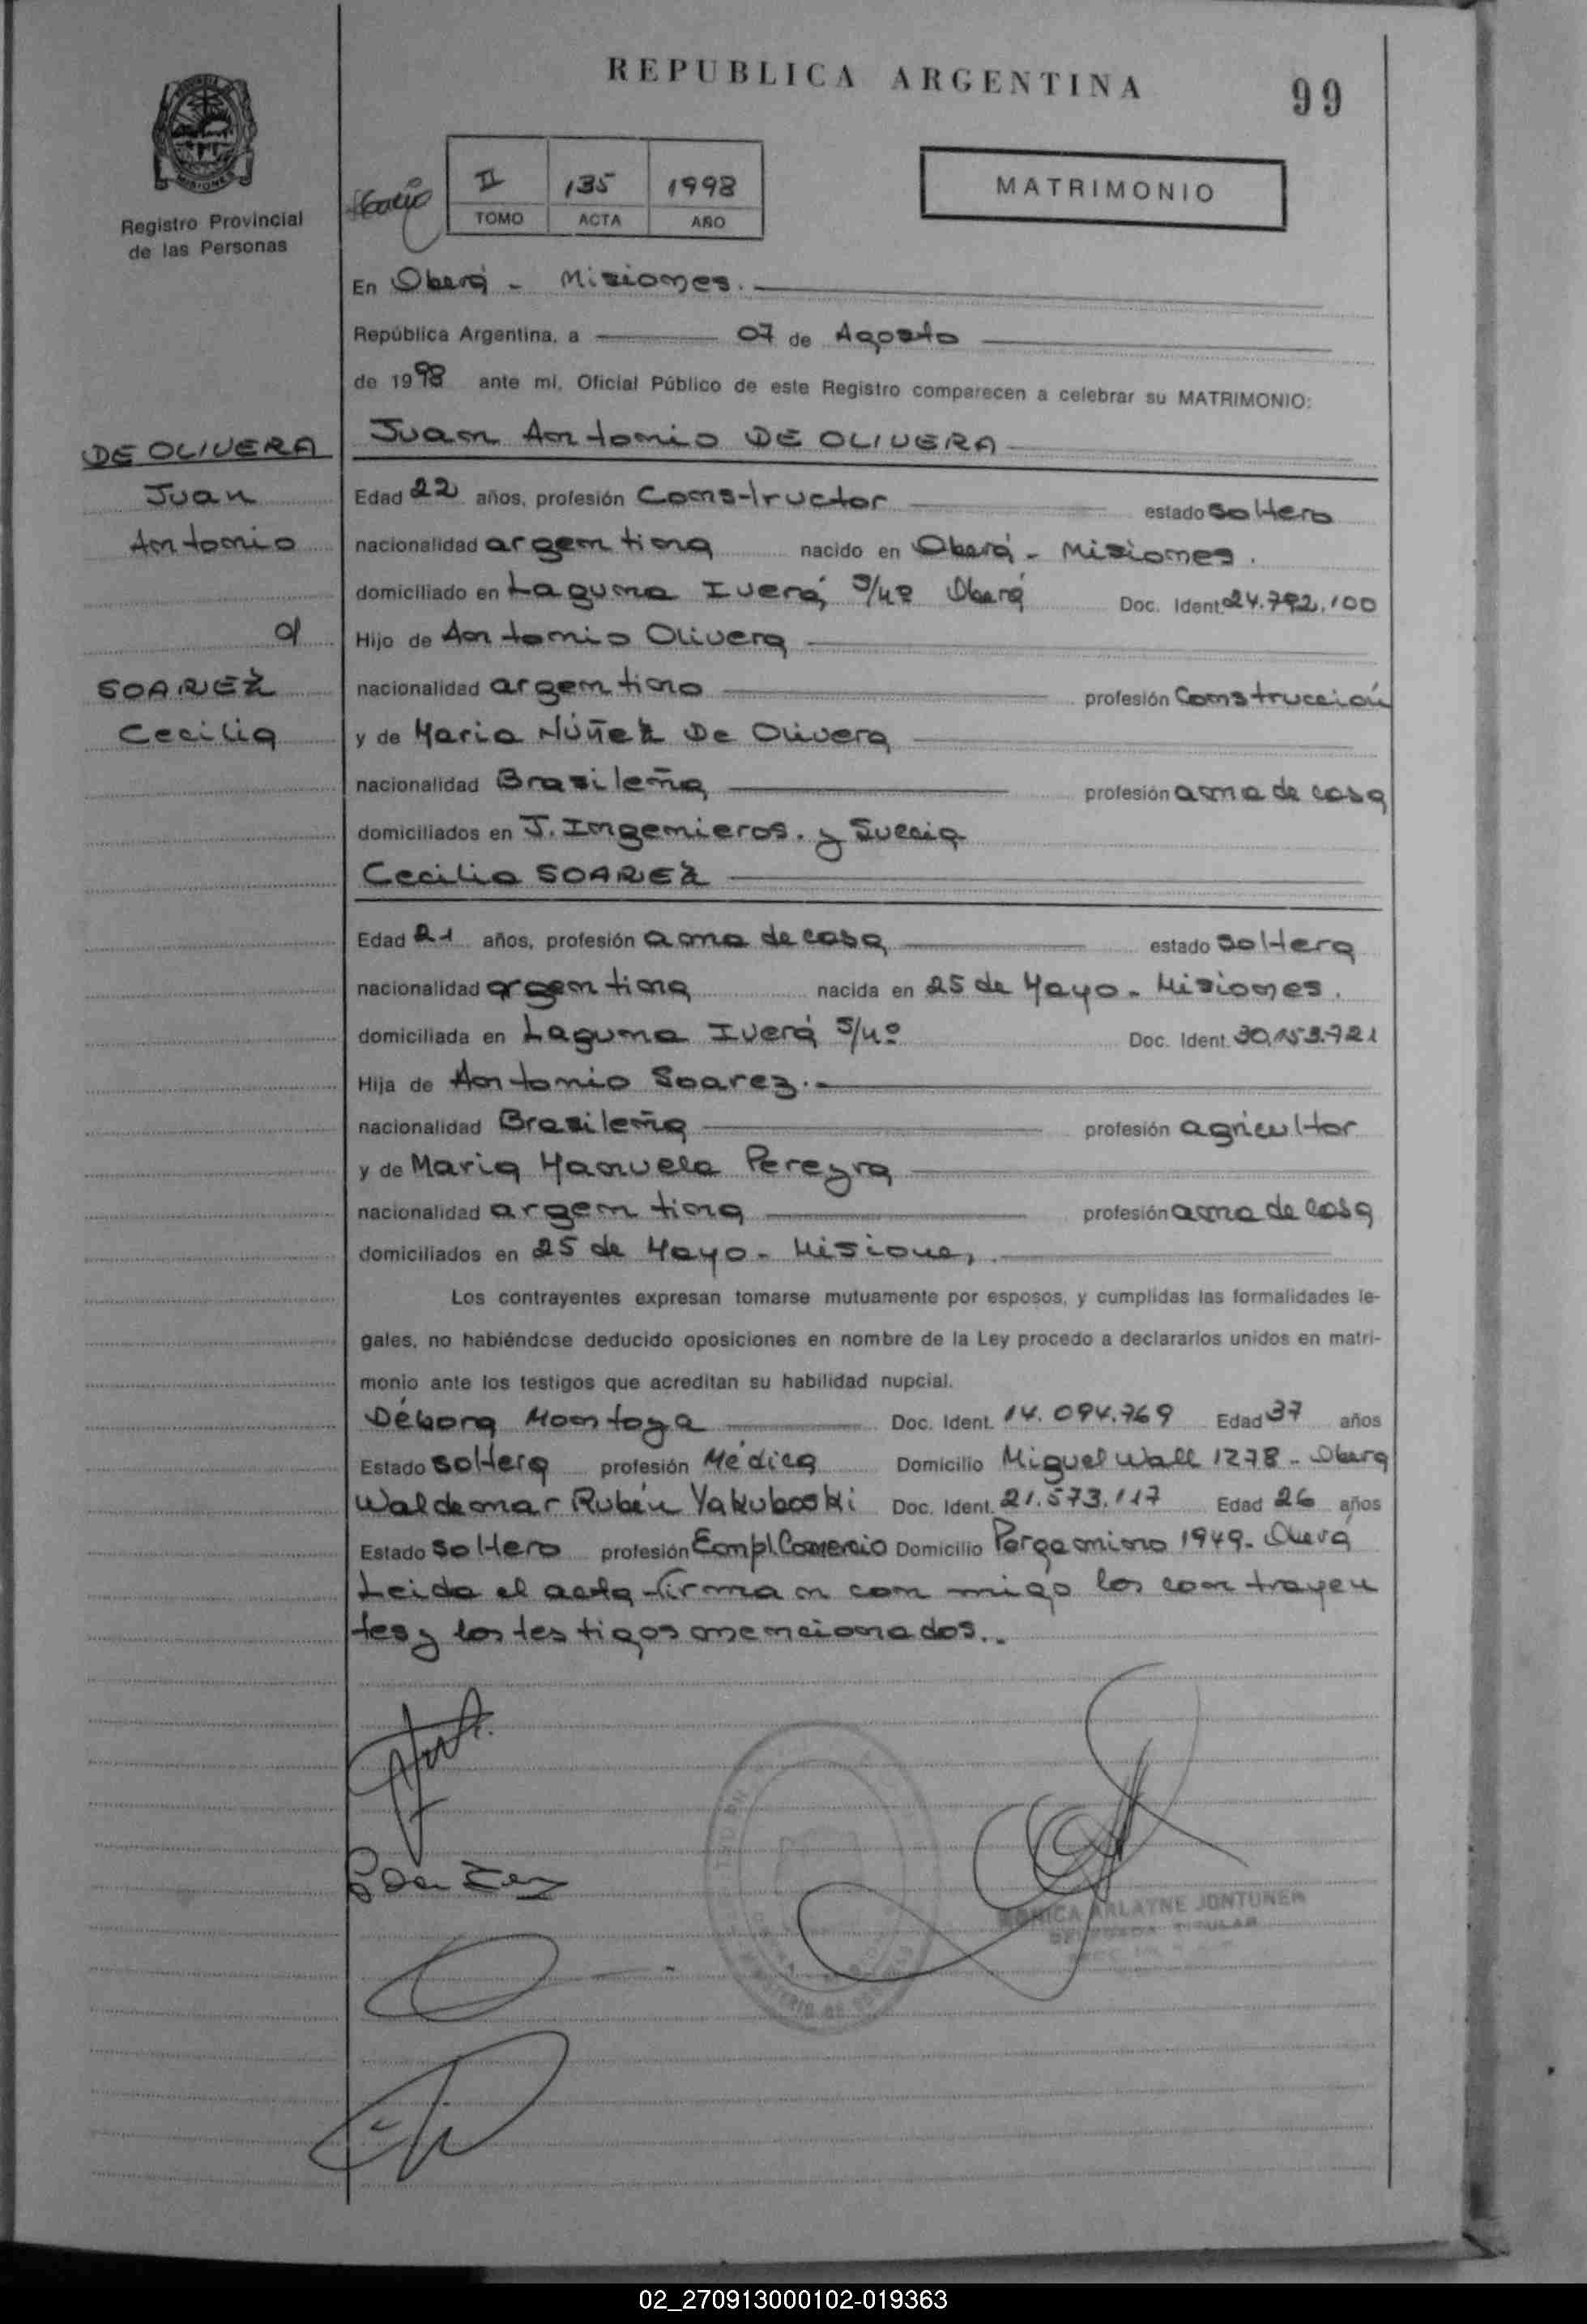 REPUBLICA ARGENTINA
99
MISIONES
Registro Provincial
de las Personas
II 135 1998
TOMO ACTA AÑO
MATRIMONIO
En Oberá - Misiones.
República Argentina, a 07 de Agosto
de 1998 ante mí, Oficial Público de este Registro comparecen a celebrar su MATRIMONIO:
DE OLIVERA
Juan
Antonio
c/
SOAREZ
Cecilia
Juan Antonio DE OLIVERA
Edad 22 años, profesión Constructor estado soltero
nacionalidad argentina nacido en Oberá - Misiones.
domiciliado en Laguna Iverá, S/nº Oberá Doc. Ident. 24.792.100
Hijo de Antonio Olivera
nacionalidad argentino profesión Construcción
y de Maria Núñez De Olivera
nacionalidad Brasileña profesión ama de casa
domiciliados en J. Ingenieros. y Suecia
Cecilia SOAREZ
Edad 21 años, profesión ama de casa estado soltera
nacionalidad argentina nacida en 25 de Mayo - Misiones.
domiciliada en Laguna Iverá S/nº Doc. Ident. 30.153.721
Hija de Antonio Soarez.-
nacionalidad Brasileña profesión agricultor
y de Maria Manuela Pereyra
nacionalidad argentina profesión ama de casa
domiciliados en 25 de Mayo - Misiones,
Los contrayentes expresan tomarse mutuamente por esposos, y cumplidas las formalidades le-
gales, no habiéndose deducido oposiciones en nombre de la Ley procedo a declararlos unidos en matri-
monio ante los testigos que acreditan su habilidad nupcial.
Débora Montoya Doc. Ident. 14.094.769 Edad 37 años
Estado soltera profesión Médica Domicilio Miguel Wall 1278 - Obera
Waldemar Rubén Yakuboski Doc. Ident. 21.573.117 Edad 26 años
Estado soltero profesión Empl. Comercio Domicilio Pergamino 1949 - Oberá
Leida el acta firman conmigo los contrayen
tes y los testigos mencionados..
MONICA ARLAYNE JONTUNEN
DELEGADA TITULAR
02_270913000102-019363